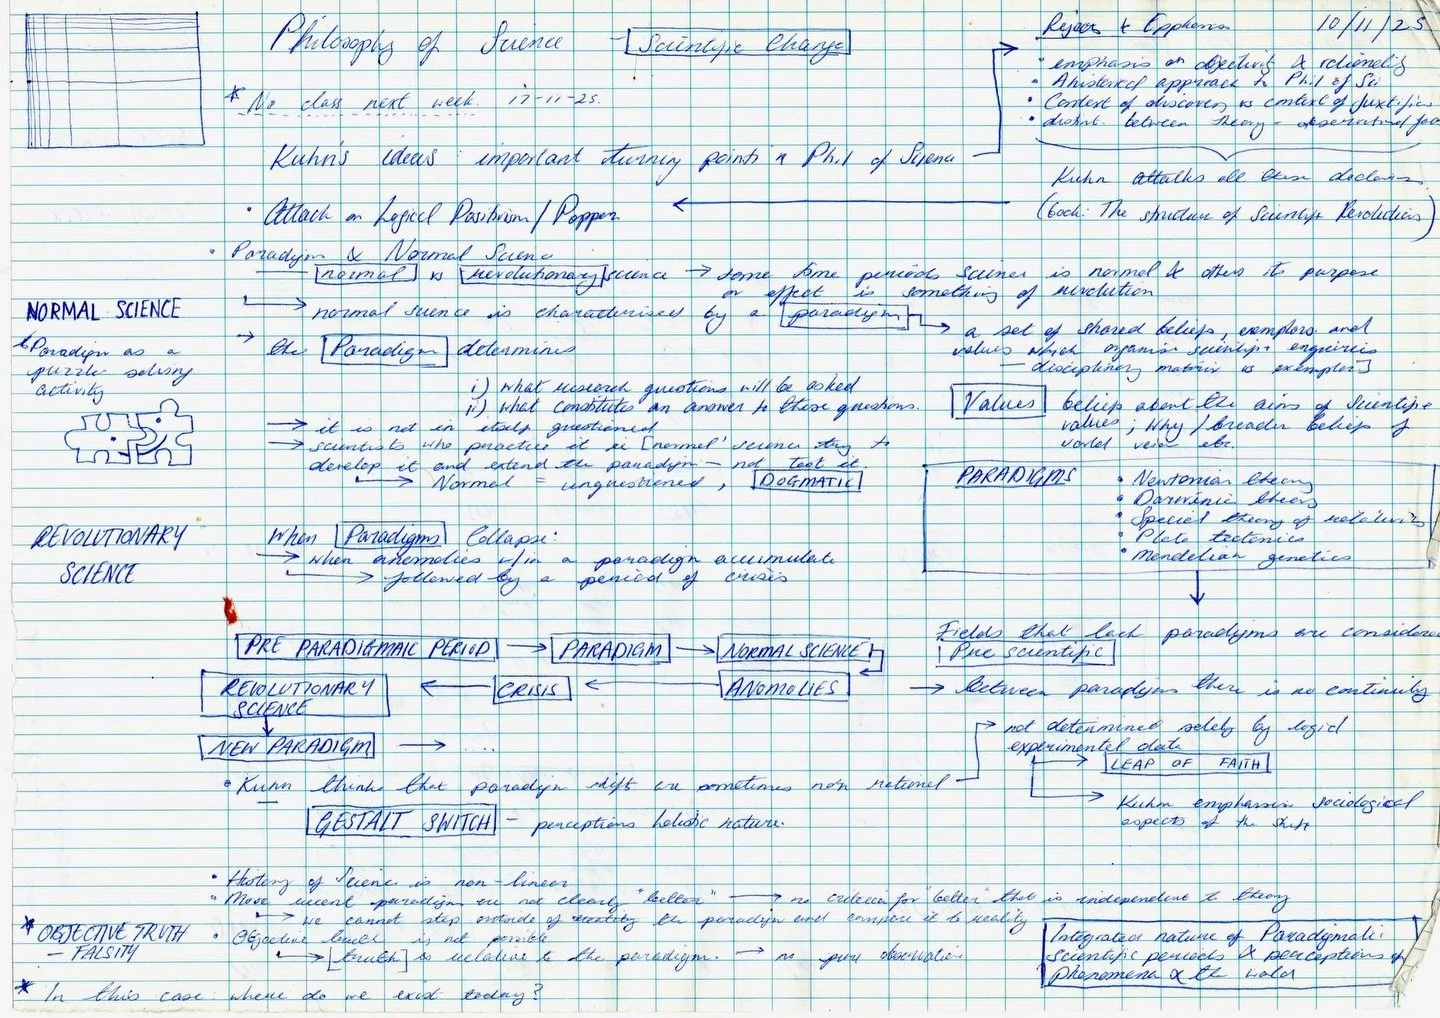 Philosophy of Science - Scientific Change
10/11/25
* No class next week. 17-11-25.
emphasis on objectivity & rationality
Ahistorical approach to Phil of Sci
Context of discovery vs context of
distint. between theory - observational
Kuhn's ideas important turning points in Phil of Science
Kuhn attacks all these
(book: The structure of Scientific Revolutions)
• Attack on Logical Positivism / Popper
• Paradigm & Normal Science
normal vs revolutionary science → some time periods science is normal & others its purpose
or effect is something of revolution
NORMAL SCIENCE
→ normal science is characterised by a paradigm
→ a set of shared beliefs, exemplars and
values which organise scientific enquiries
— disciplinary matrix vs exemplars]
* Paradigm as a
puzzle solving
activity
→ the Paradigm determines
i) what research questions will be asked
ii) what constitutes an answer to these questions.
→ it is not in itself questioned
→ scientists who practice it ie [normal' science try to
develop it and extend the paradigm - not test it.
→ Normal = unquestioned, DOGMATIC
Values beliefs about the aims of Scientific
values, why/broader beliefs of
world view etc.
PARADIGMS
• Newtonian theory
• Darwinic theory
• Special theory of relativity
• Plate tectonics
• Mendelian genetics
REVOLUTIONARY
SCIENCE
When Paradigms Collapse:
→ when anomolies w/in a paradigm accumulate
→ followed by a period of crisis
Fields that lack paradigms are considered
Pre scientific
PRE PARADIGMAIC PERIOD → PARADIGM → NORMAL SCIENCE
REVOLUTIONARY SCIENCE ← CRISIS ← ANOMOLIES
→ between paradigms there is no continuity
NEW PARADIGM → ...
→ not determined solely by logic/
experimental data
→ LEAP OF FAITH
→ Kuhn emphasises sociological
aspects of the shift
• Kuhn thinks that paradigm shift are sometimes non rational
GESTALT SWITCH - perceptions holistic nature.
• History of Science is non-linear
• More recent paradigm are not clearly "better" → no criterion for "better" that is independent to theory
→ we cannot step outside of the paradigm and compare it to reality
* OBJECTIVE TRUTH
- FALSITY
• Objective truth is not possible
→ [truth] is relative to the paradigm. → no pure observation
Integrated nature of Paradigmatic
Scientific periods & perceptions of
phenomena & the world
* In this case: where do we exist today?